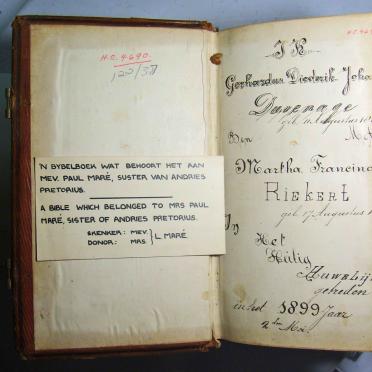 H.C. 4690.
122/37
'N BYBELBOEK WAT BEHOORT HET AAN
MEV. PAUL MARÉ, SUSTER VAN ANDRIES
PRETORIUS.
A BIBLE WHICH BELONGED TO MRS PAUL
MARÉ, SISTER OF ANDRIES PRETORIUS.
SKENKER: MEV. } L. MARÉ
DONOR: MRS.
H.C. 4690.
Ik
Gerhardus Diederik Joha
Davenage
geb. 11 Augustus
Ben
Martha Francina
Riekert
geb. 17 Augustus
In
Het
Heilig
Huwelij
getreden
in het 1899 Jaar
2den Mei.